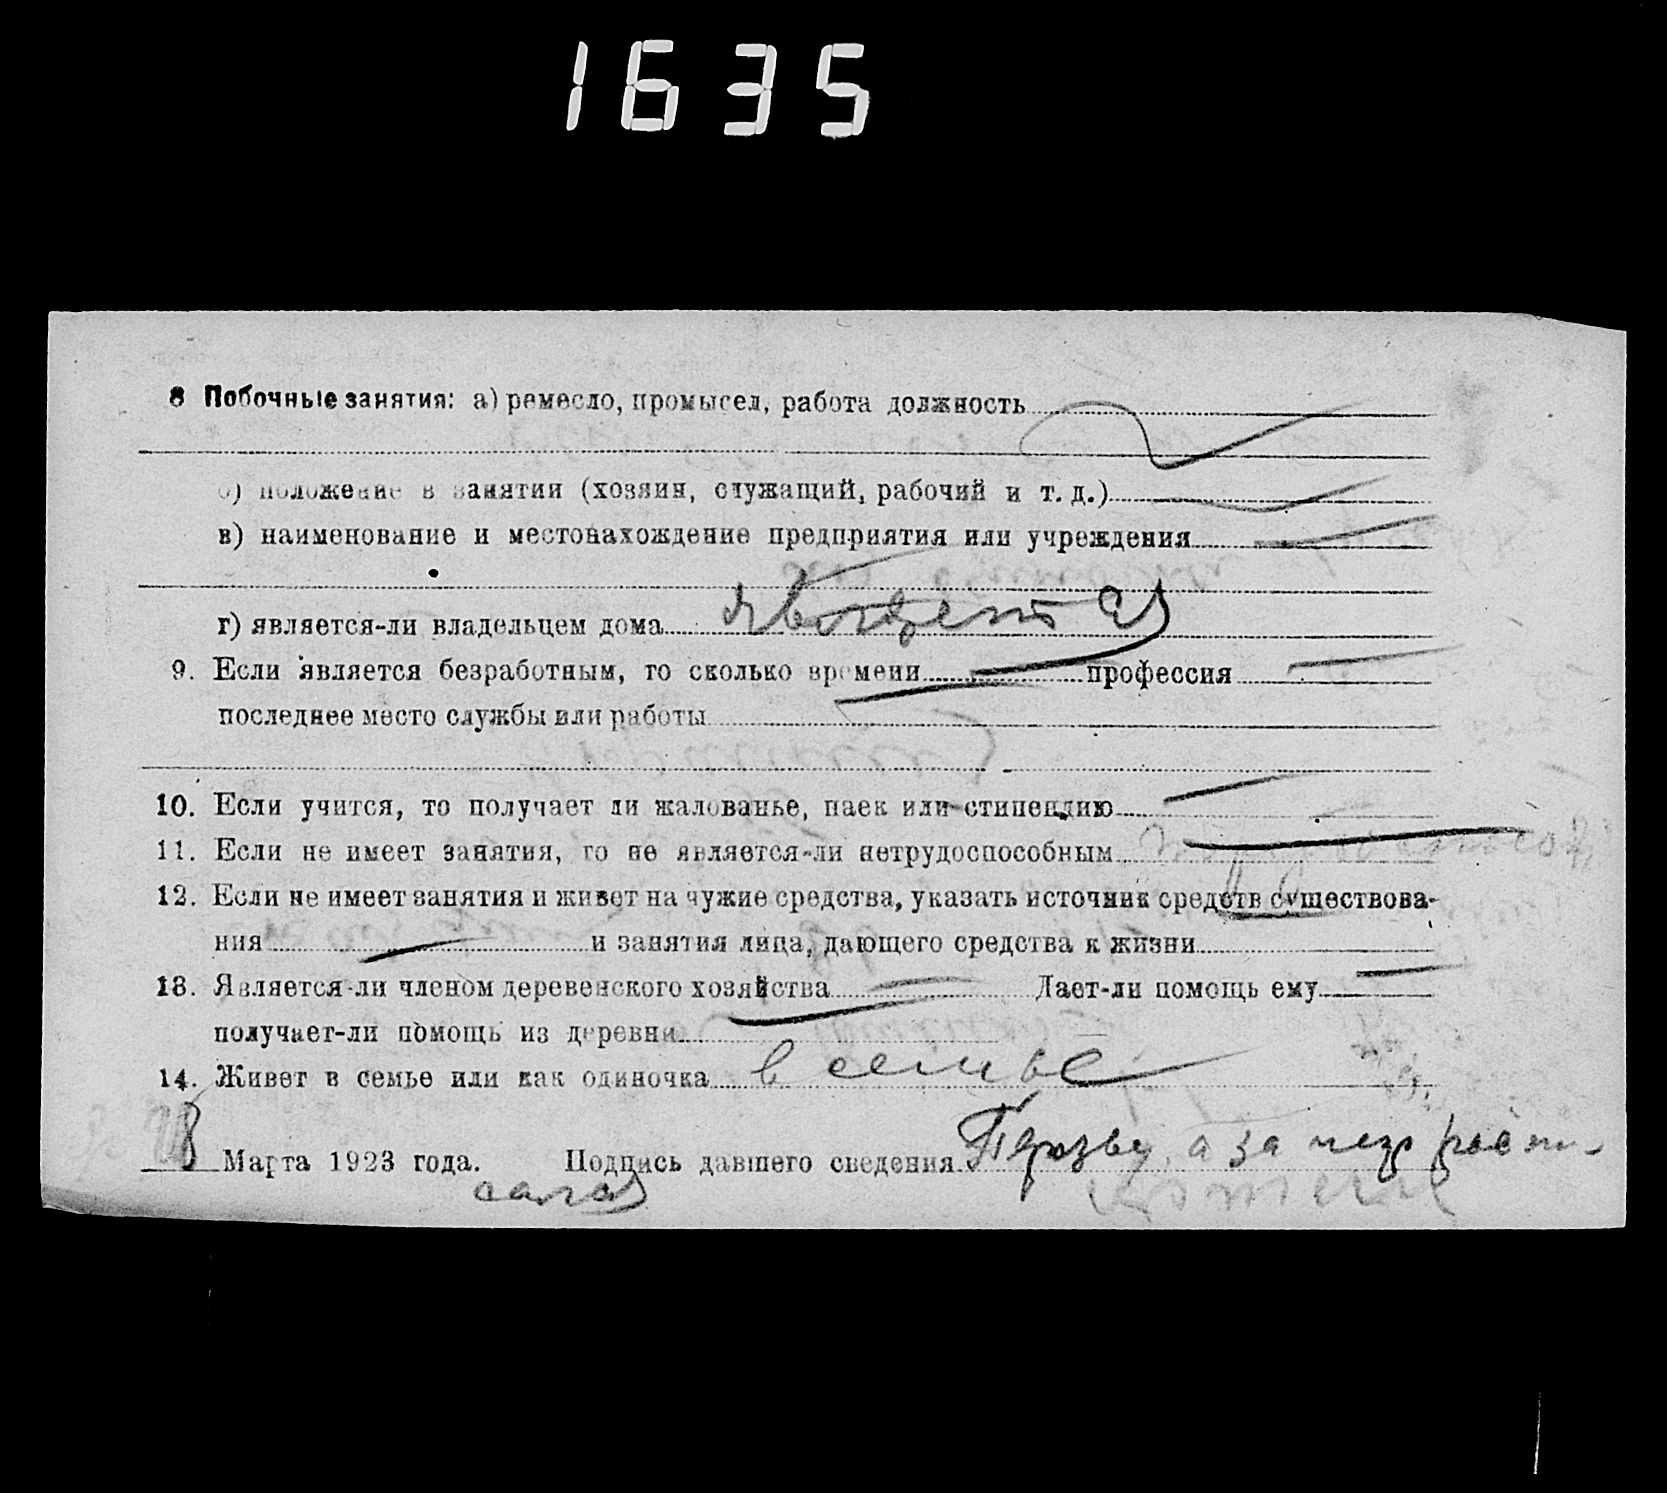 1635
8 Побочные занятия: а) ремесло, промысел, работа должность
б) положение в занятии (хозяин, служащий, рабочий и т. д.)
в) наименование и местонахождение предприятия или учреждения
г) является-ли владельцем дома
9. Если является безработным, то сколько времени профессия
последнее место службы или работы
10. Если учится, то получает ли жалованье, паек или стипендию
11. Если не имеет занятия, то не является-ли нетрудоспособным
12. Если не имеет занятия и живет на чужие средства, указать источник средств существова-
ния и занятия лица, дающего средства к жизни
13. Является-ли членом деревенского хозяйства Дает-ли помощь ему
получает-ли помощь из деревни
14. Живет в семье или как одиночка в семье
8 Марта 1923 года. Подпись давшего сведения а за